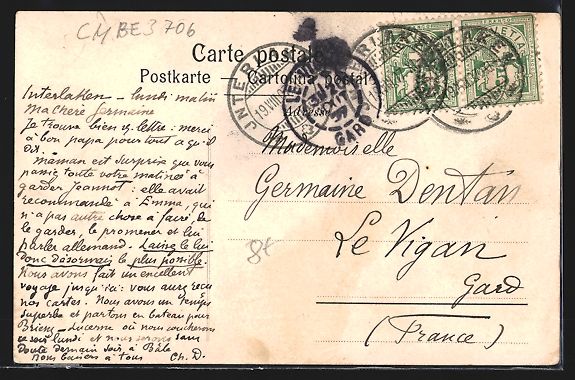 CH BE3706
Carte postale
Postkarte — Cartolina postale
Adresse
INTERLAKEN
GARD
HELVETIA
Interlaken – lundi matin
Ma chère Germaine
Je trouve bien ta lettre: merci
à bon papa pour tout ce qu'il
dit.
Maman est surprise que vous
passiez toute votre matinée à
garder Jeannot: elle avait
recommandé à Emma, qui
n'a pas autre chose à faire, de
le garder, le promener et lui
parler allemand. Laisse le lui
donc désormais le plus possible.
Nous avons fait un excellent
voyage jusqu'ici: vous aurez reçu
nos cartes. Nous avons un temps
superbe et partons en bateau pour
Brienz – Lucerne où nous coucherons
ce soir lundi et nous serons sans
doute demain soir à Bâle
Bons baisers à tous Ch. D.
Mademoiselle
Germaine Dentan
Le Vigan
Gard
(France)